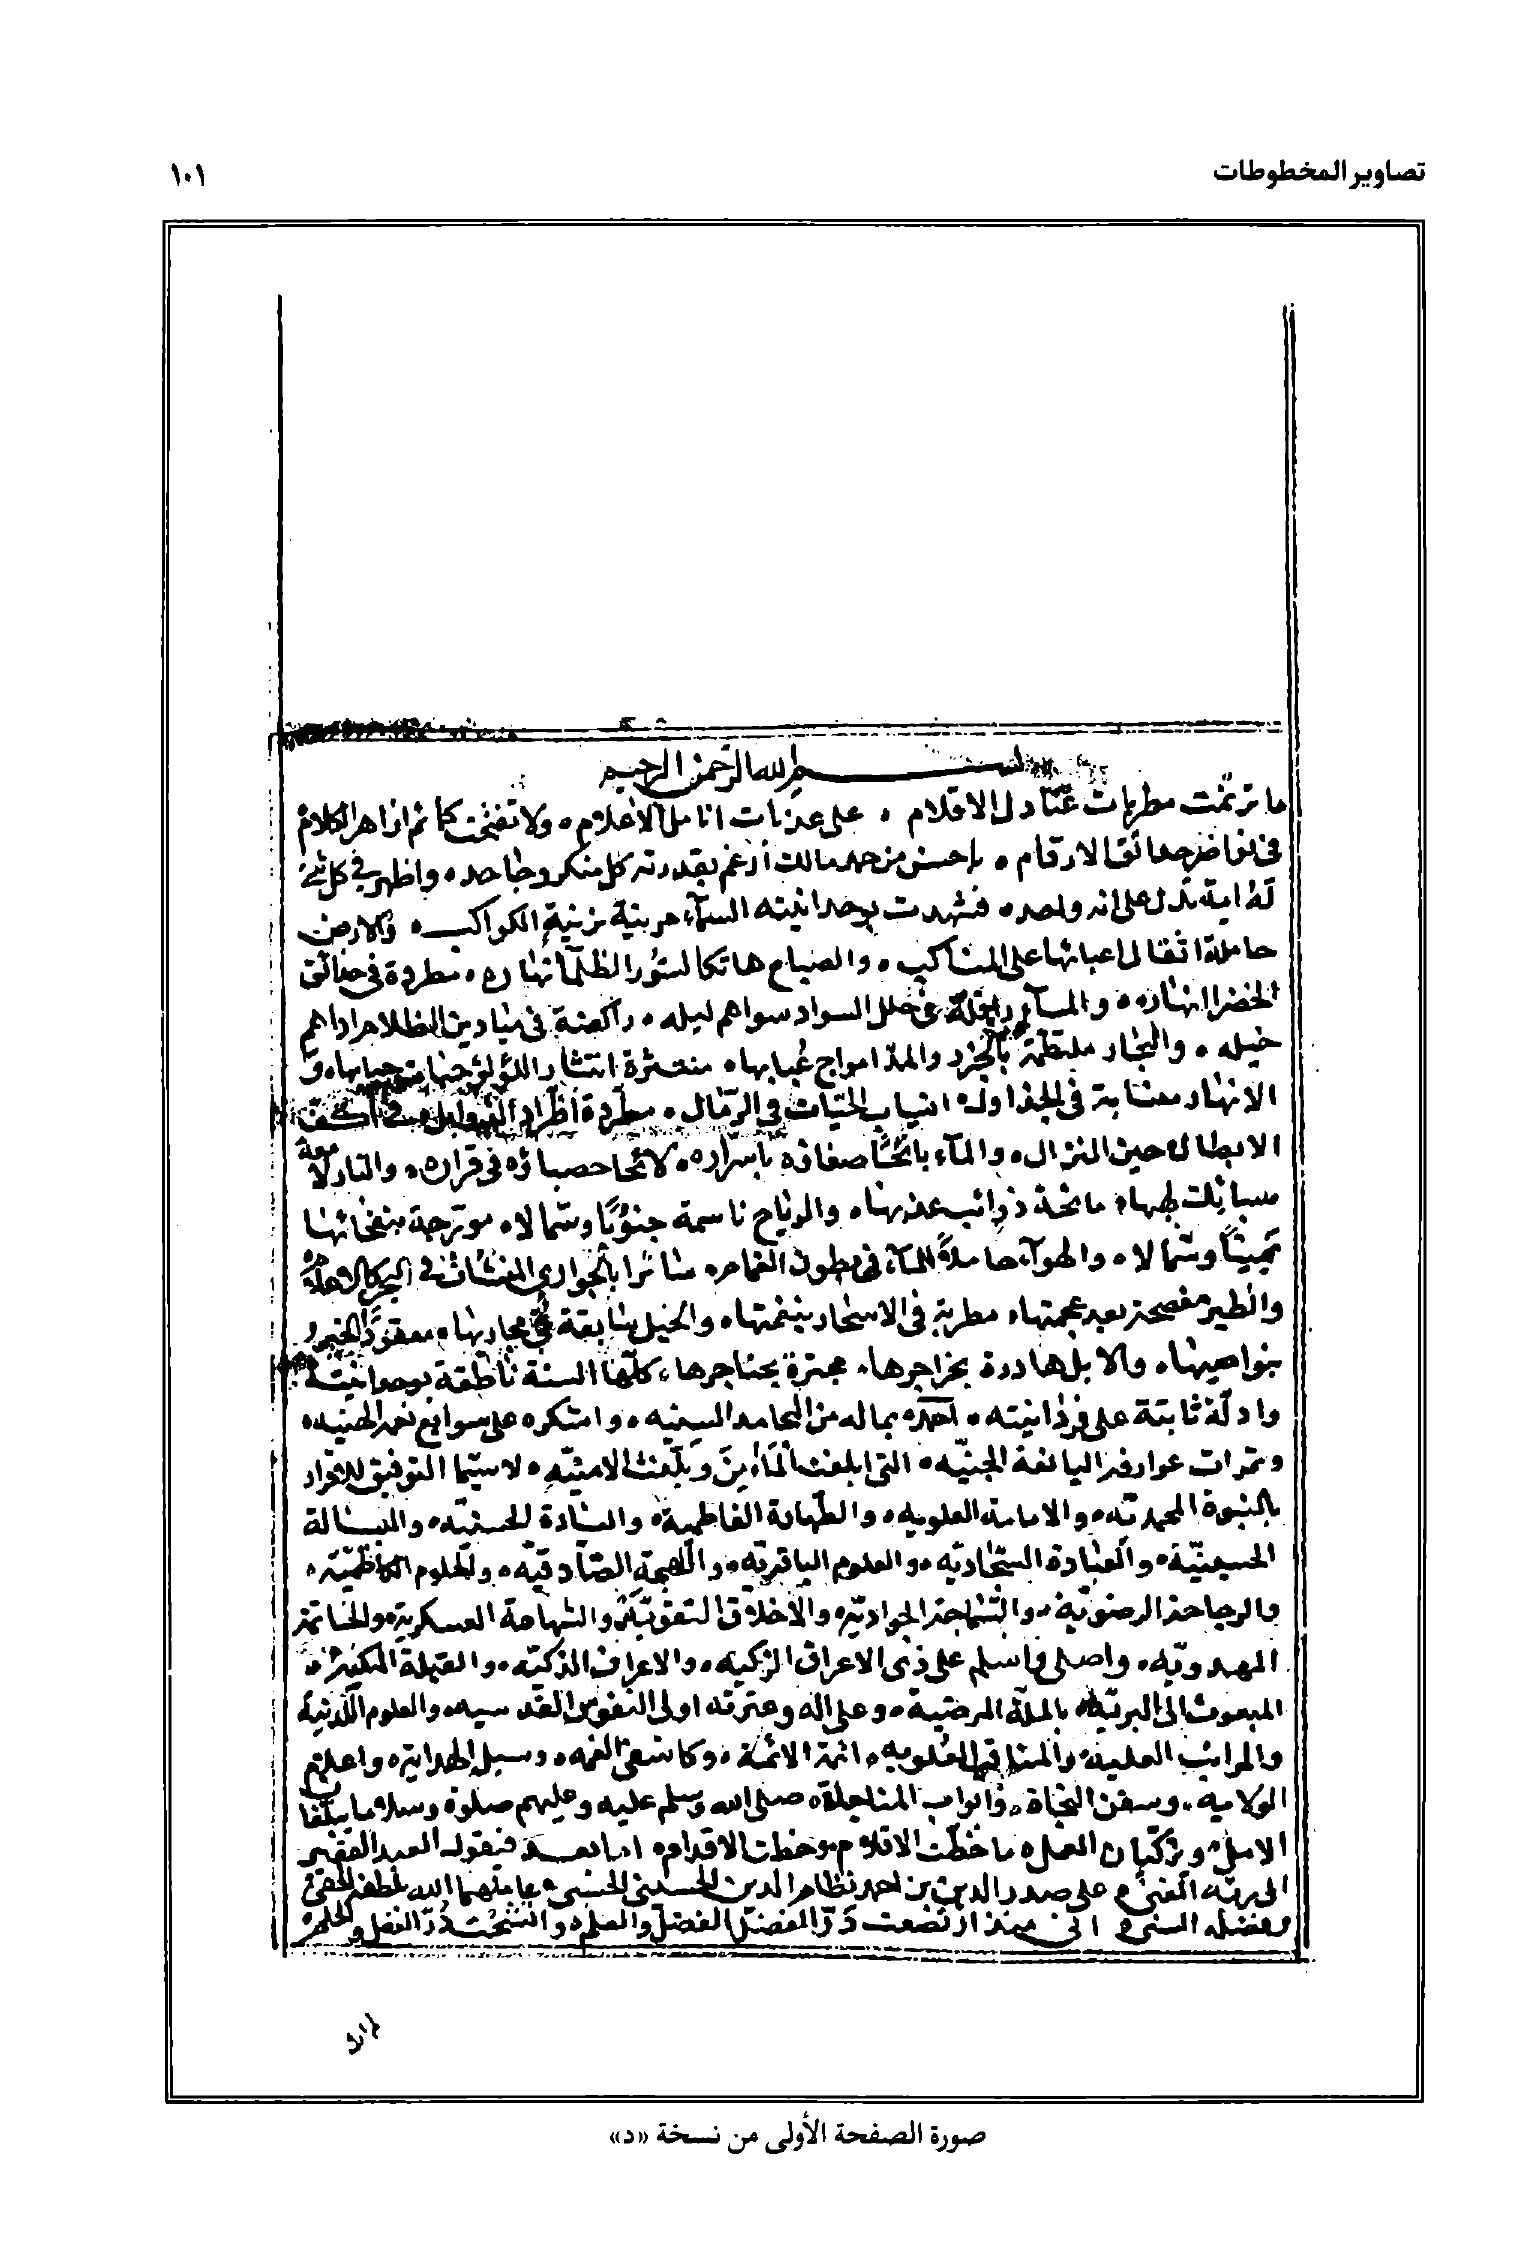 تصاوير المخطوطات
١٠١
بسم الله الرحمن الرحيم
ما ترنّمت مطربات عنادل الاقلام ، على عذبات انامل الأعلام ، ولا تفتّحت كمائم ازاهر الكلام
في رياض حدائق الارقام ، باحسن من حمد مالك أرغم بقدرته كل منكر وجاحد ، واظهر في كل شئ
له اية تدل على انه واحد ، فشهدت بوحدانيته السمآء مزينة بزينة الكواكب ، والارض
حاملة اثقال اعبائها على المناكب ، والصباح هاتكا لستور الظلمآ نهاره ، مطردة في حدائق
الخضر انهاره ، والمسآء رافلة في حلل السواد سواهم ليله ، راكضة في ميادين الظلام اداهم
خيله ، والبحار ملتطمة بالجزر والمد امواج عبابها ، منتثرة انتثار اللؤلؤ حبابها ، و
الانهار منسابة في الجداول ، انسياب الحيّات في الرّمال ، مطّردة اطّراد الذوابل في أكفّ
الابطال حين النزال ، والمآء بائحًا صفاؤه بأسراره ، لائحا حصباؤه في قراره ، والنار لامعة
سبائك لهبها ، ذوائب عذبها ، والرياح ناسمة جنوبًا وشمالا ، بنفحاتها
يمينًا وشمالا ، والهوآء حاملة المآء في بطون الغمام ، بالجواري المنشئات في البحر كالاعلام
والطير مفصحة بعد عجمتها ، مطربة في الاسحار بنغمتها ، والخيل سابقة في مجاريها ، معقود الخير
بنواصيها ، والابل هادرة ، مجترة بحناجرها ، كلّها السنة ناطقة بوحدانيته
وادلّة ثابتة على فردانيته ، احمده بماله من المحامد السنيه ، واشكره على سوابغ نعمه الهنيه ،
وثمرات عوارفه اليانعة الجنيّه ، التي ابلغت المأمن وبلّغت الامنيه ، لا سيّما التوفيق للاقرار
بالنبوة المحمديّه ، والامامة العلويه ، والطهارة الفاطمية ، والسيادة الحسنيّه ، والبسالة
الحسينيّة ، والعبادة السجّاديّه ، والعلوم الباقريّه ، واللهجة الصّادقيّه ، والحلوم الكاظميّه ،
والرجاحة الرضويّة ، والسّماحة الجواديّه والأخلاق النقويّة ، والشهامة العسكرية والخاتمة
المهدويّه ، واصلي واسلم على ذي الاعراق الزكيه ، والاعراف الذكيّه ،
المبعوث الى البريّة ، بالملة المرضيّة ، وعلى اله وعترته اولى النفوس القدسيه ، والعلوم اللّدنية
والمراتب العليه ، والمناقب العلويه ، ائمة الائمة ، وكاشفى الغمه ، وسبل الهدايه ، واعلام
الولايه ، وسفن النجاة ، وابواب المناجاة ، صلى الله وسلم عليه وعليهم صلوة وسلاما يبلّغان
الامل ، ويزكّيان العمل ، ما خطّت الاقلام ، وخطت الاقدام ، اما بعد فيقول العبد الفقير
الى ربّه الغنيّ ، على صدر الدين بن احمد نظام الدين الحسيني الحسني ، عاملهما الله بلطفه الخفيّ
وفضله السنيّ ، اني منذ ارتضعت درّ الفضل والعلم ، واتشحت درّ العقل والحلم
صورة الصفحة الأولى من نسخة «د»